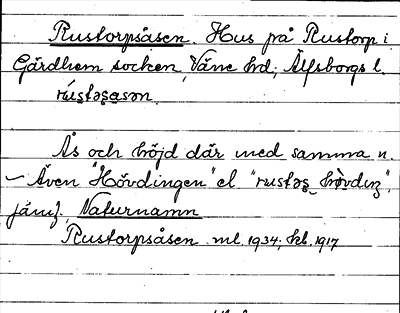 Rustorpsåsen. Hus på Rustorp i
Gärdhem socken, Väne hd; Älfsborgs l.
rú̀stəsa̱sən.
Ås och höjd där med samma n.
– Även "Hövdingen" el. "rustəs hò̀vdıŋ",
jäm[f. Naturnamn
Rustorpsåsen ml. 1934; hl. 1917